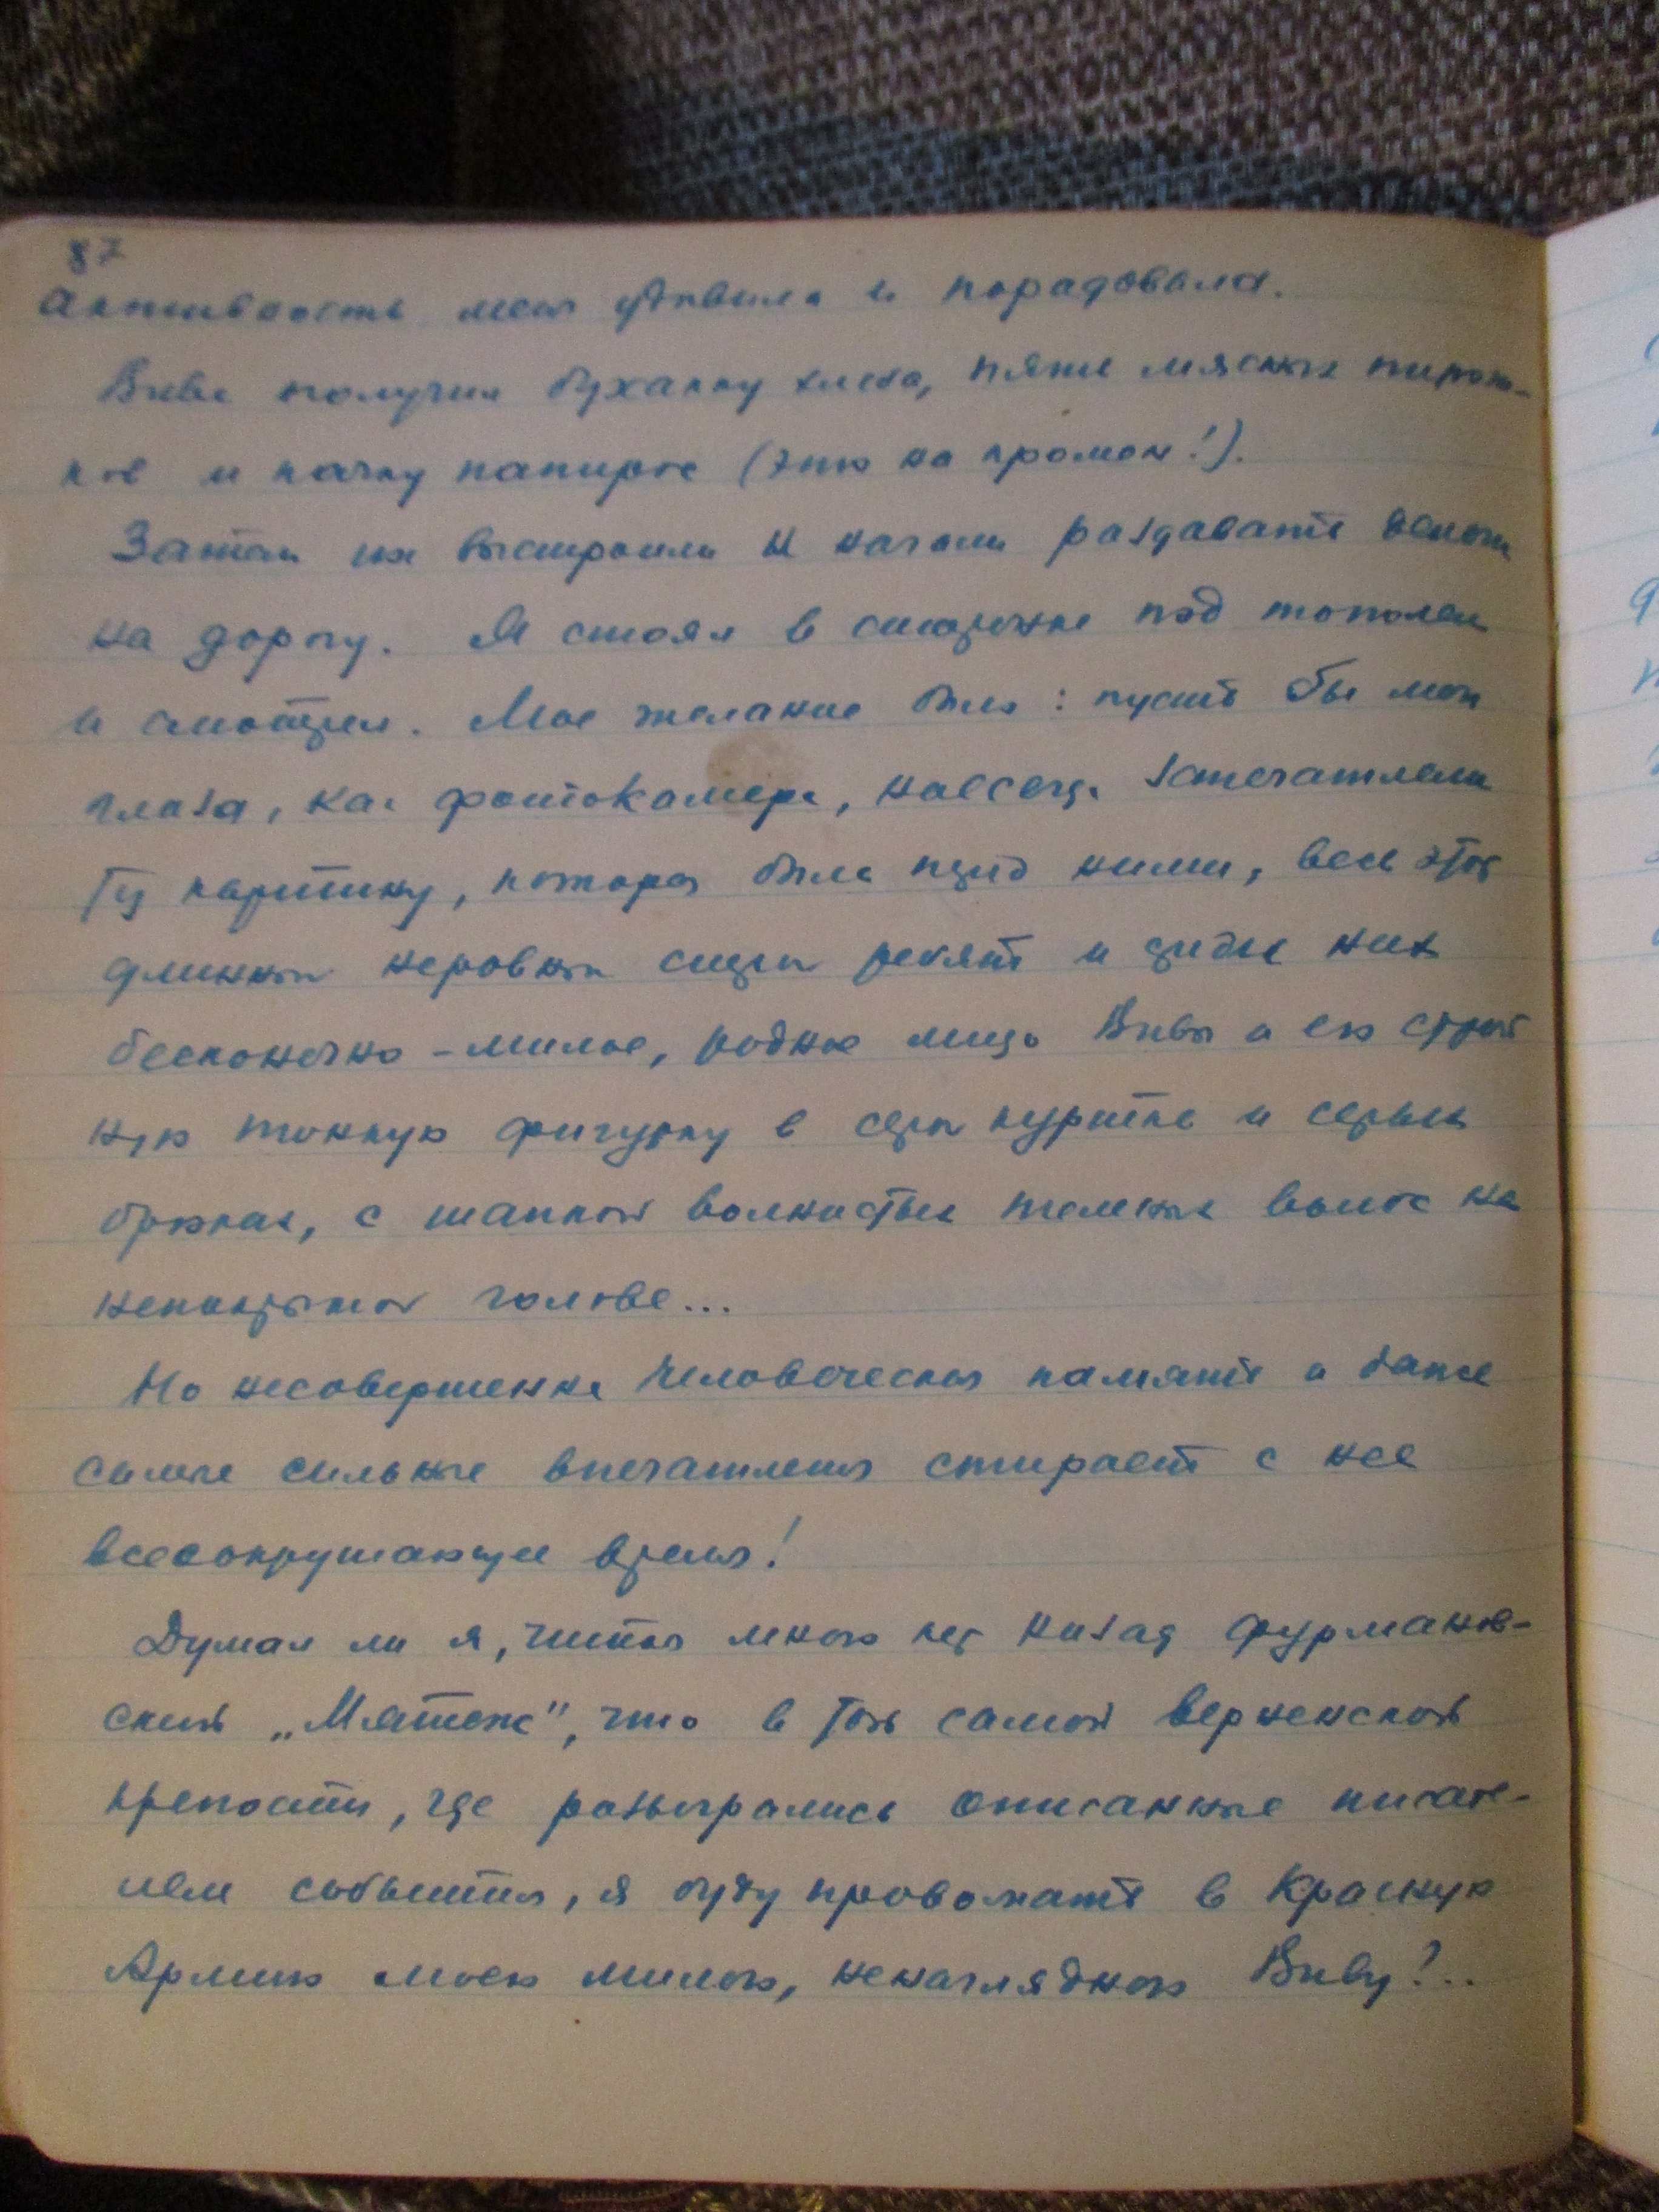 87
активность меня удивила и порадовала.
Вива получил буханку хлеба, пять мясных пирож-
ков и пачку папирос (это на кромон!).
Затем их выстроили и начали раздавать деньги
на дорогу. Я стоял в сторонке под тополем
и смотрел. Мое желание было: пусть бы мои
глаза, как фотокамера, навсегда запечатлели
ту картину, которая была перед ними, весь этот
длинный неровный строй ребят и среди них
бесконечно-милое, родное лицо Вивы и его строй-
ную тонкую фигурку в серой куртке и серых
брюках, с шапкой волнистых темных волос на
непокрытой голове...
Но несовершенна человеческая память и даже
самые сильные впечатления стирает с нее
всесокрушающее время!
Думал ли я, читая много лет назад фурманов-
ский „Мятеж", что в той самой верненской
крепости, где разыгрались описанные писате-
лем события, я буду провожать в Красную
Армию моего милого, ненаглядного Виву?..